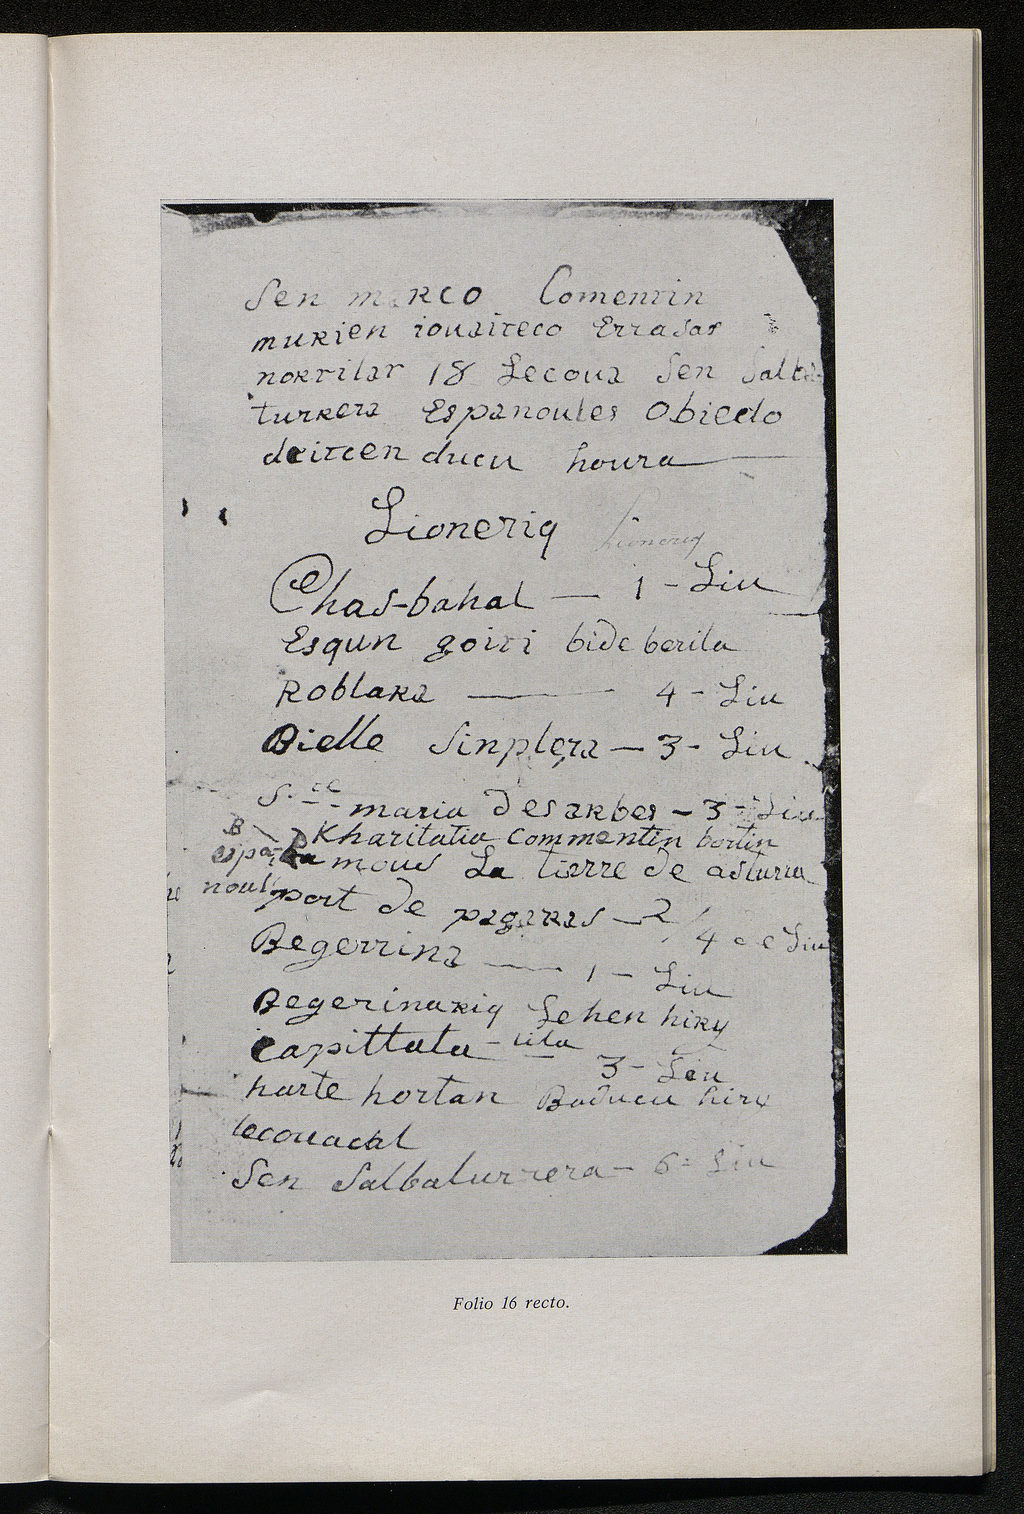 Sen marco Comentin
murien iouaiteco Errasar
norrilar 18 Lecoua Sen Salba
turrera Espanoules Obiedo
deitcen ducu houra
Lioneriq Lioneriq
Chas-bahal — 1 - Liu
Esqun goiri bide berila
Roblara — 4 - Liu
Bielle Sinplera — 3 - Liu
S.te maria desarbes - 3 - Liu
Kharitatia Commentin bortin
B
espa-
noul
mous La tierre de asturia
port de pagaras — 2
4 de Liu
Begerrina — 1 - Liu
Begerinariq Lehen hiry
Capittala - lila
3 - Leu
harte hortan Baducu hiry
lecouachl
Sen Salbaturrera - 6 = Liu
Folio 16 recto.